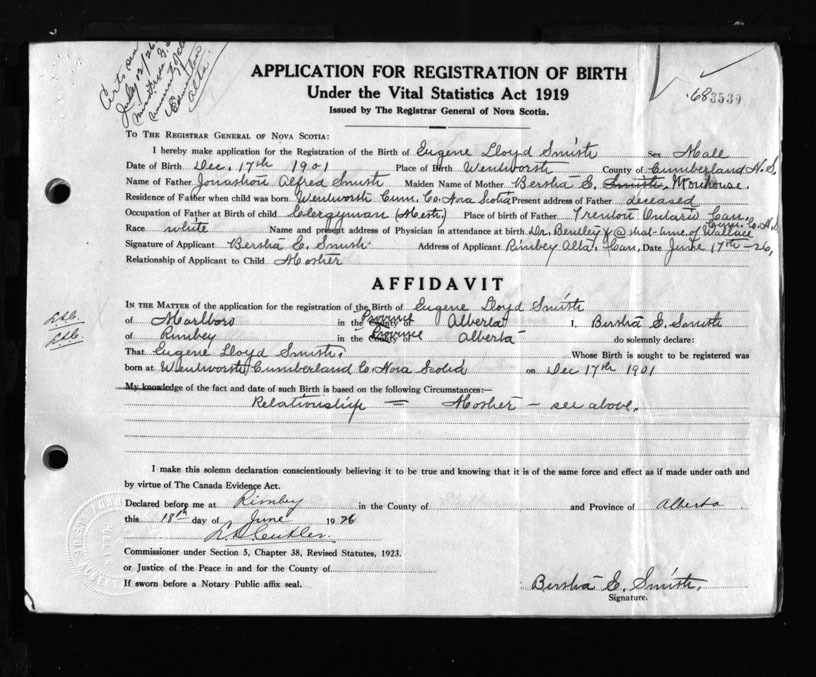 APPLICATION FOR REGISTRATION OF BIRTH
Under the Vital Statistics Act 1919
Issued by The Registrar General of Nova Scotia.
683539
TO THE REGISTRAR GENERAL OF NOVA SCOTIA:
I hereby make application for the Registration of the Birth of Eugene Lloyd Smith sex Male
Date of Birth Dec. 17th 1901 Place of Birth Wentworth County of Cumberland N.S.
Name of Father Jonathon Alfred Smith Maiden Name of Mother Bertha E. Smith.
Residence of Father when child was born Wentworth Cum. Co. Nova Scotia Present address of Father deceased
Occupation of Father at Birth of child Clergyman (Meth.) Place of birth of Father Trenton Ontario Can.
Cum. Co. N.S.
Race white Name and present address of Physician in attendance at birth Dr. Bentley @ that time of Wallace
Signature of Applicant Bertha E. Smith Address of Applicant Rimbey Alta. Can. Date June 17th - 26.
Relationship of Applicant to Child Mother
AFFIDAVIT
IN THE MATTER of the application for the registration of the Birth of Eugene Lloyd Smith
of Marlboro in the County of Province Alberta I, Bertha E. Smith
of Rimbey in the County of Province Alberta do solemnly declare:
That Eugene Lloyd Smith. Whose Birth is sought to be registered was
born at Wentworth Cumberland Co. Nova Scotia on Dec 17th 1901
My knowledge of the fact and date of such Birth is based on the following Circumstances:—
Relationship = Mother - see above.
I make this solemn declaration conscientiously believing it to be true and knowing that it is of the same force and effect as if made under oath and
by virtue of The Canada Evidence Act.
Declared before me at Rimbey in the County of and Province of Alberta
this 18th day of June 1926
Commissioner under Section 5, Chapter 38, Revised Statutes, 1923.
or Justice of the Peace in and for the County of
If sworn before a Notary Public affix seal.
Bertha E. Smith.
Signature.